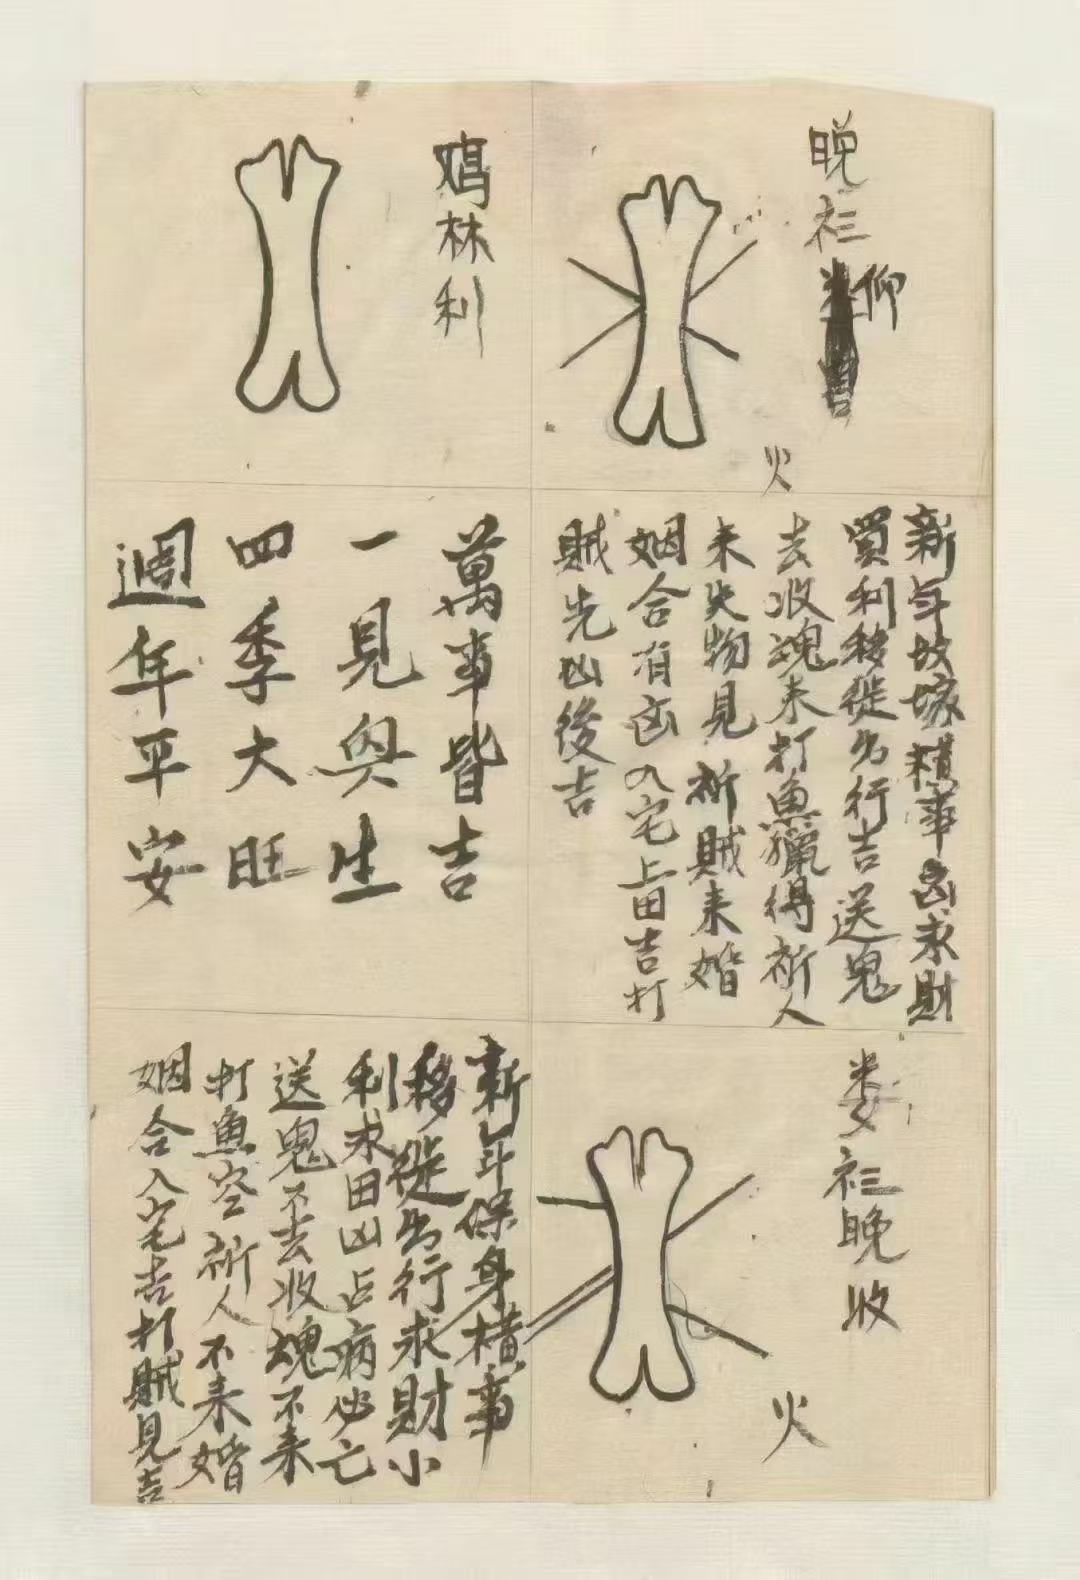 晚衫仰
火
新年坟塚横事凶求財
買利移徙出行吉送鬼
去收魂未打魚獵得祈人
未失物見祈賊来婚
姻合有凶入宅上田吉打
賊先凶後吉
娄衫晚收
火
鸡林利
萬事皆吉
一見興生
四季大旺
週年平安
新年保身横事
移徙出行求財小
利求田凶占病必亡
送鬼不去收魂不来
打魚空祈人不来婚
姻合入宅吉打賊見吉